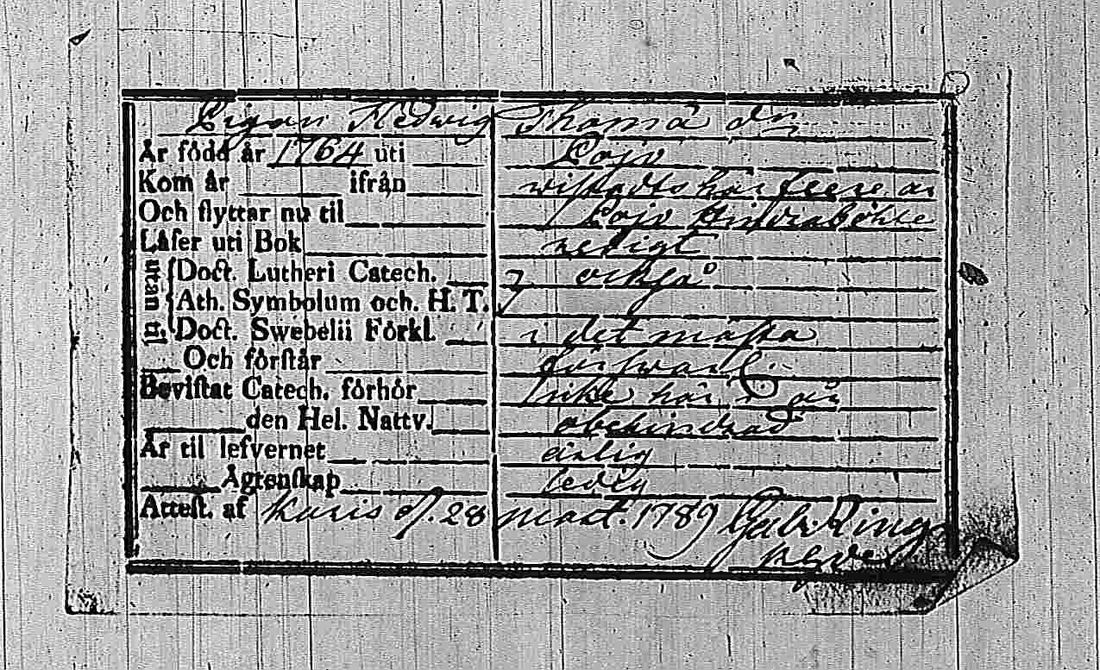 Pigan Hedwig Thomæ dr
Är född år 1764 uti Lojo
Kom år ifrån wistadts här flere år
Och flyttar nu til Lojo
Läser uti Bok nedigt
utan til
Doct. Lutheri Catech. också
Ath. Symbolum och. H. T.
Doct. Swebelii Förkl. i det mästa
Och förstår försvarl.
Bevistat Catech. förhör här i år
den Hel. Nattv. obehindrad
Är til lefvernet ärlig
Ägtenskap ledig
Attest. af Karis d. 28 Mart. 1789 Gab. Ring